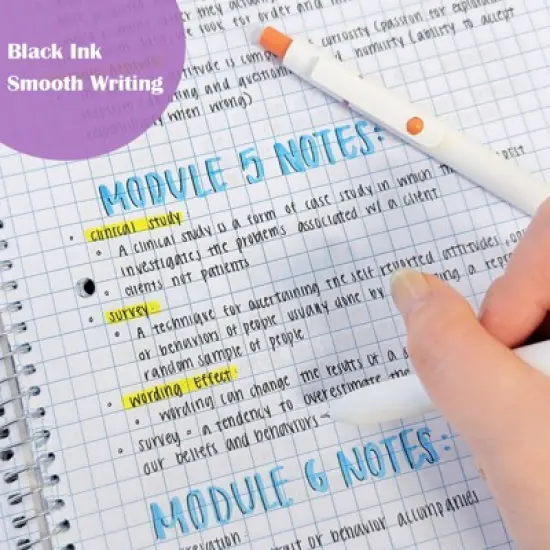 Black Ink
Smooth Writing
look for order and
curiosity (passion for
humility (ability to accept
when wrong)
MODULE 5 NOTES:
clinical study
A clinical study is a form of case study in which
investigates the problems associated w/ a client
clients not patients
survey
A technique for ascertaining the self reported attitudes,
or behaviors of people usually done by
random sample of people
wording Effect
wording can change the results of a
survey = a tendency to overestimate
our beliefs and behaviors
MODULE 6 NOTES:
or behavior accompanies